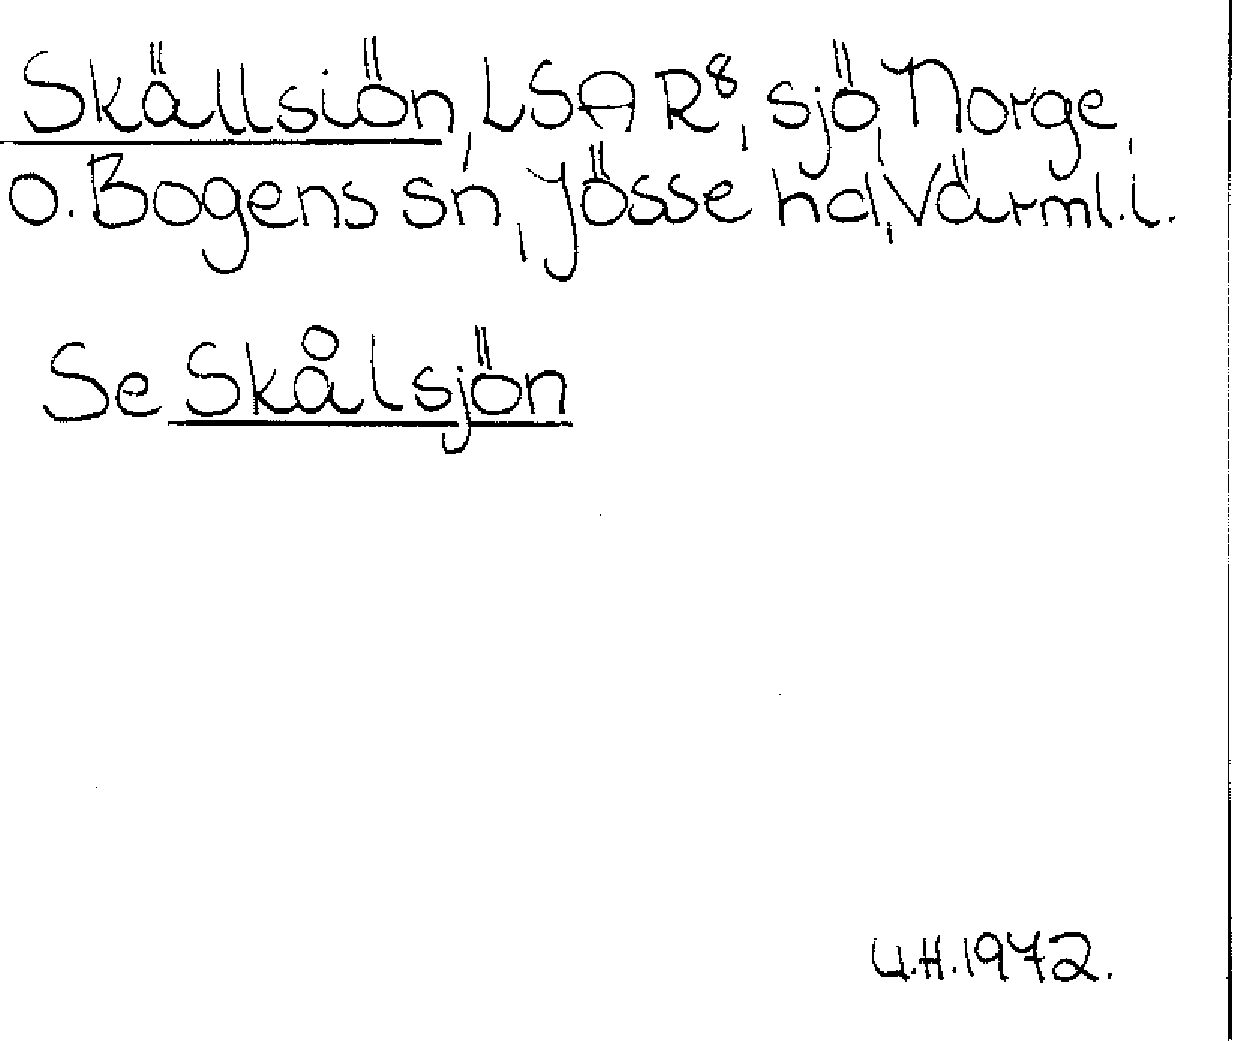 Skällsiön, LSA R⁸, sjö, Norge,
o. Bogens sn, Jösse hd, Värml. l.
Se Skålsjön
U.H. 1972.